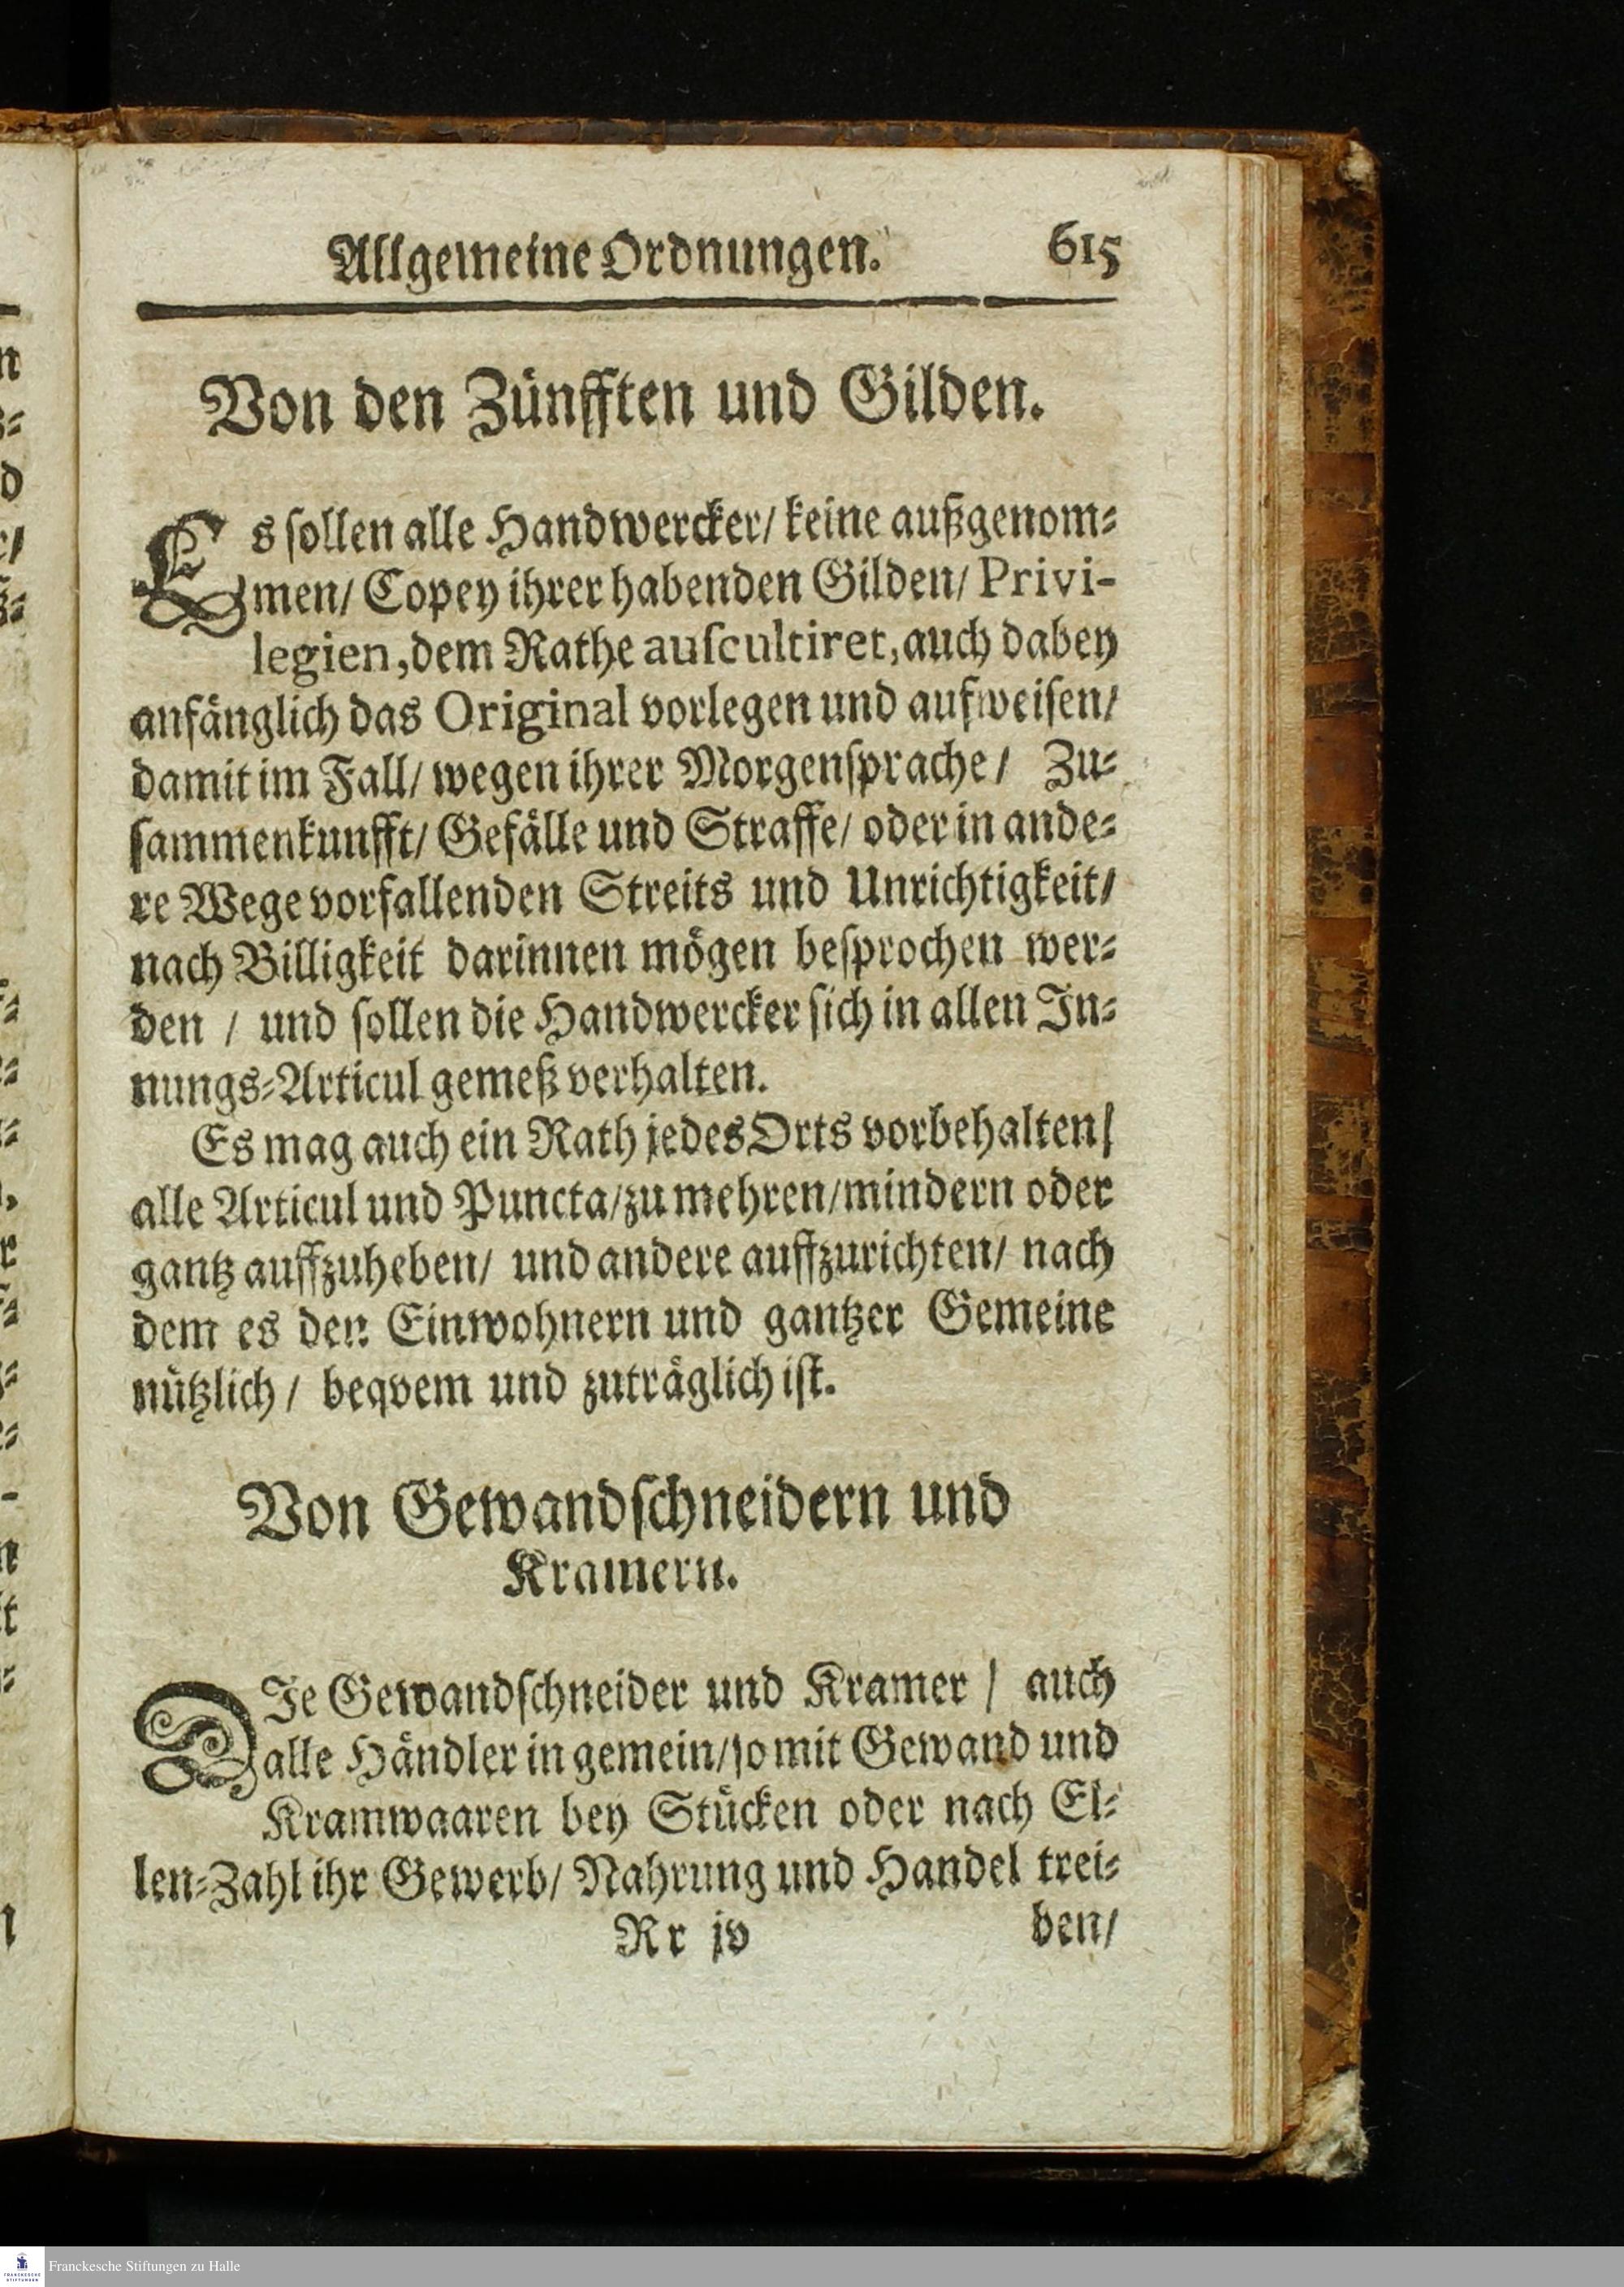 Allgemeine Ordnungen. 615
Von den Zünfften und Gilden.
Es ſollen alle Handwercker/ keine außgenom⸗
men/ Copey ihrer habenden Gilden/ Privi-
legien, dem Rathe auſcultiret, auch dabey
anfänglich das Original vorlegen und aufweiſen/
damit im Fall/ wegen ihrer Morgenſprache/ Zu⸗
ſammenkunfft/ Gefälle und Straffe/ oder in ande⸗
re Wege vorfallenden Streits und Unrichtigkeit/
nach Billigkeit darinnen mögen beſprochen wer⸗
den / und ſollen die Handwercker ſich in allen In⸗
nungs⸗Articul gemeß verhalten.
Es mag auch ein Rath jedes Orts vorbehalten/
alle Articul und Puncta/ zu mehren/ mindern oder
gantz auffzuheben/ und andere auffzurichten/ nach
dem es den Einwohnern und gantzer Gemeine
nützlich / beqvem und zuträglich iſt.
Von Gewandſchneidern und
Kramern.
DIe Gewandſchneider und Kramer / auch
alle Händler in gemein/ ſo mit Gewand und
Kramwaaren bey Stücken oder nach El⸗
len⸗Zahl ihr Gewerb/ Nahrung und Handel trei⸗
Rr jv ben/
Franckesche Stiftungen zu Halle
FRANCKESCHE
STIFTUNGEN